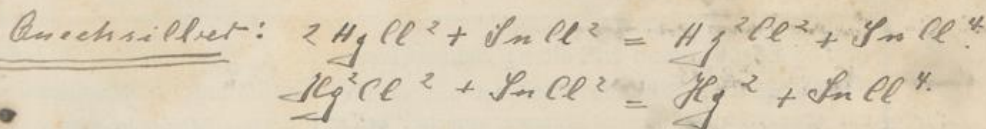 Quecksilber: 2 HgCl² + SnCl² = Hg²Cl² + SnCl⁴.
Hg²Cl² + SnCl² = Hg² + SnCl⁴.